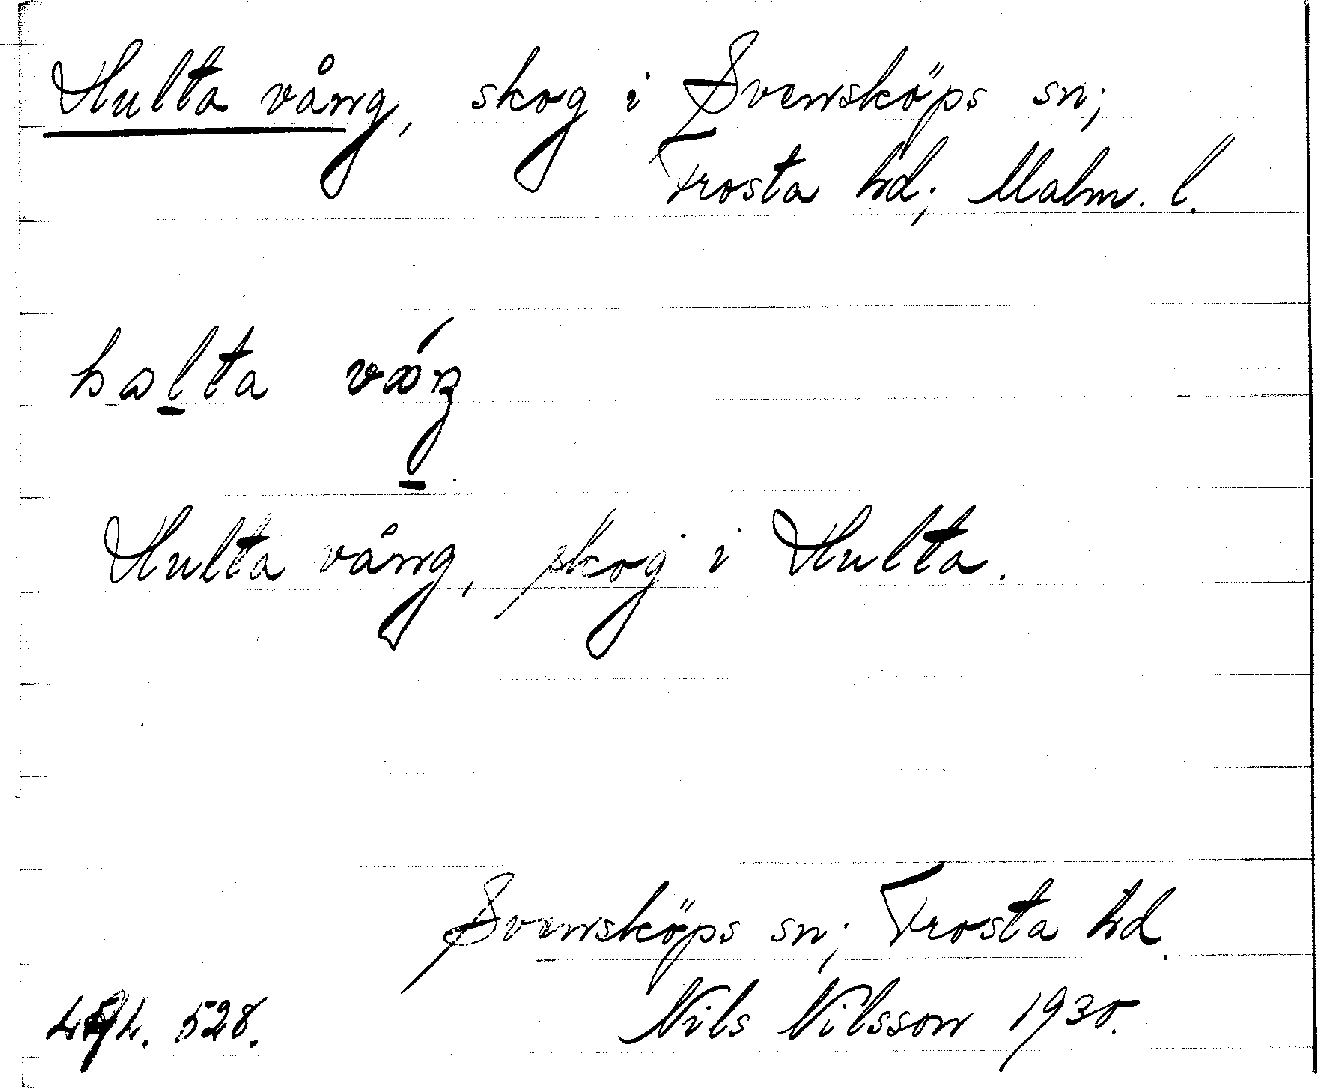 Hulta vång, skog i Svensköps sn;
Trosta hd; Malm. l.
Hulta vång, skog i Hulta.
Svensköps sn; Frosta hd.
528. Nils Nilsson 1930.